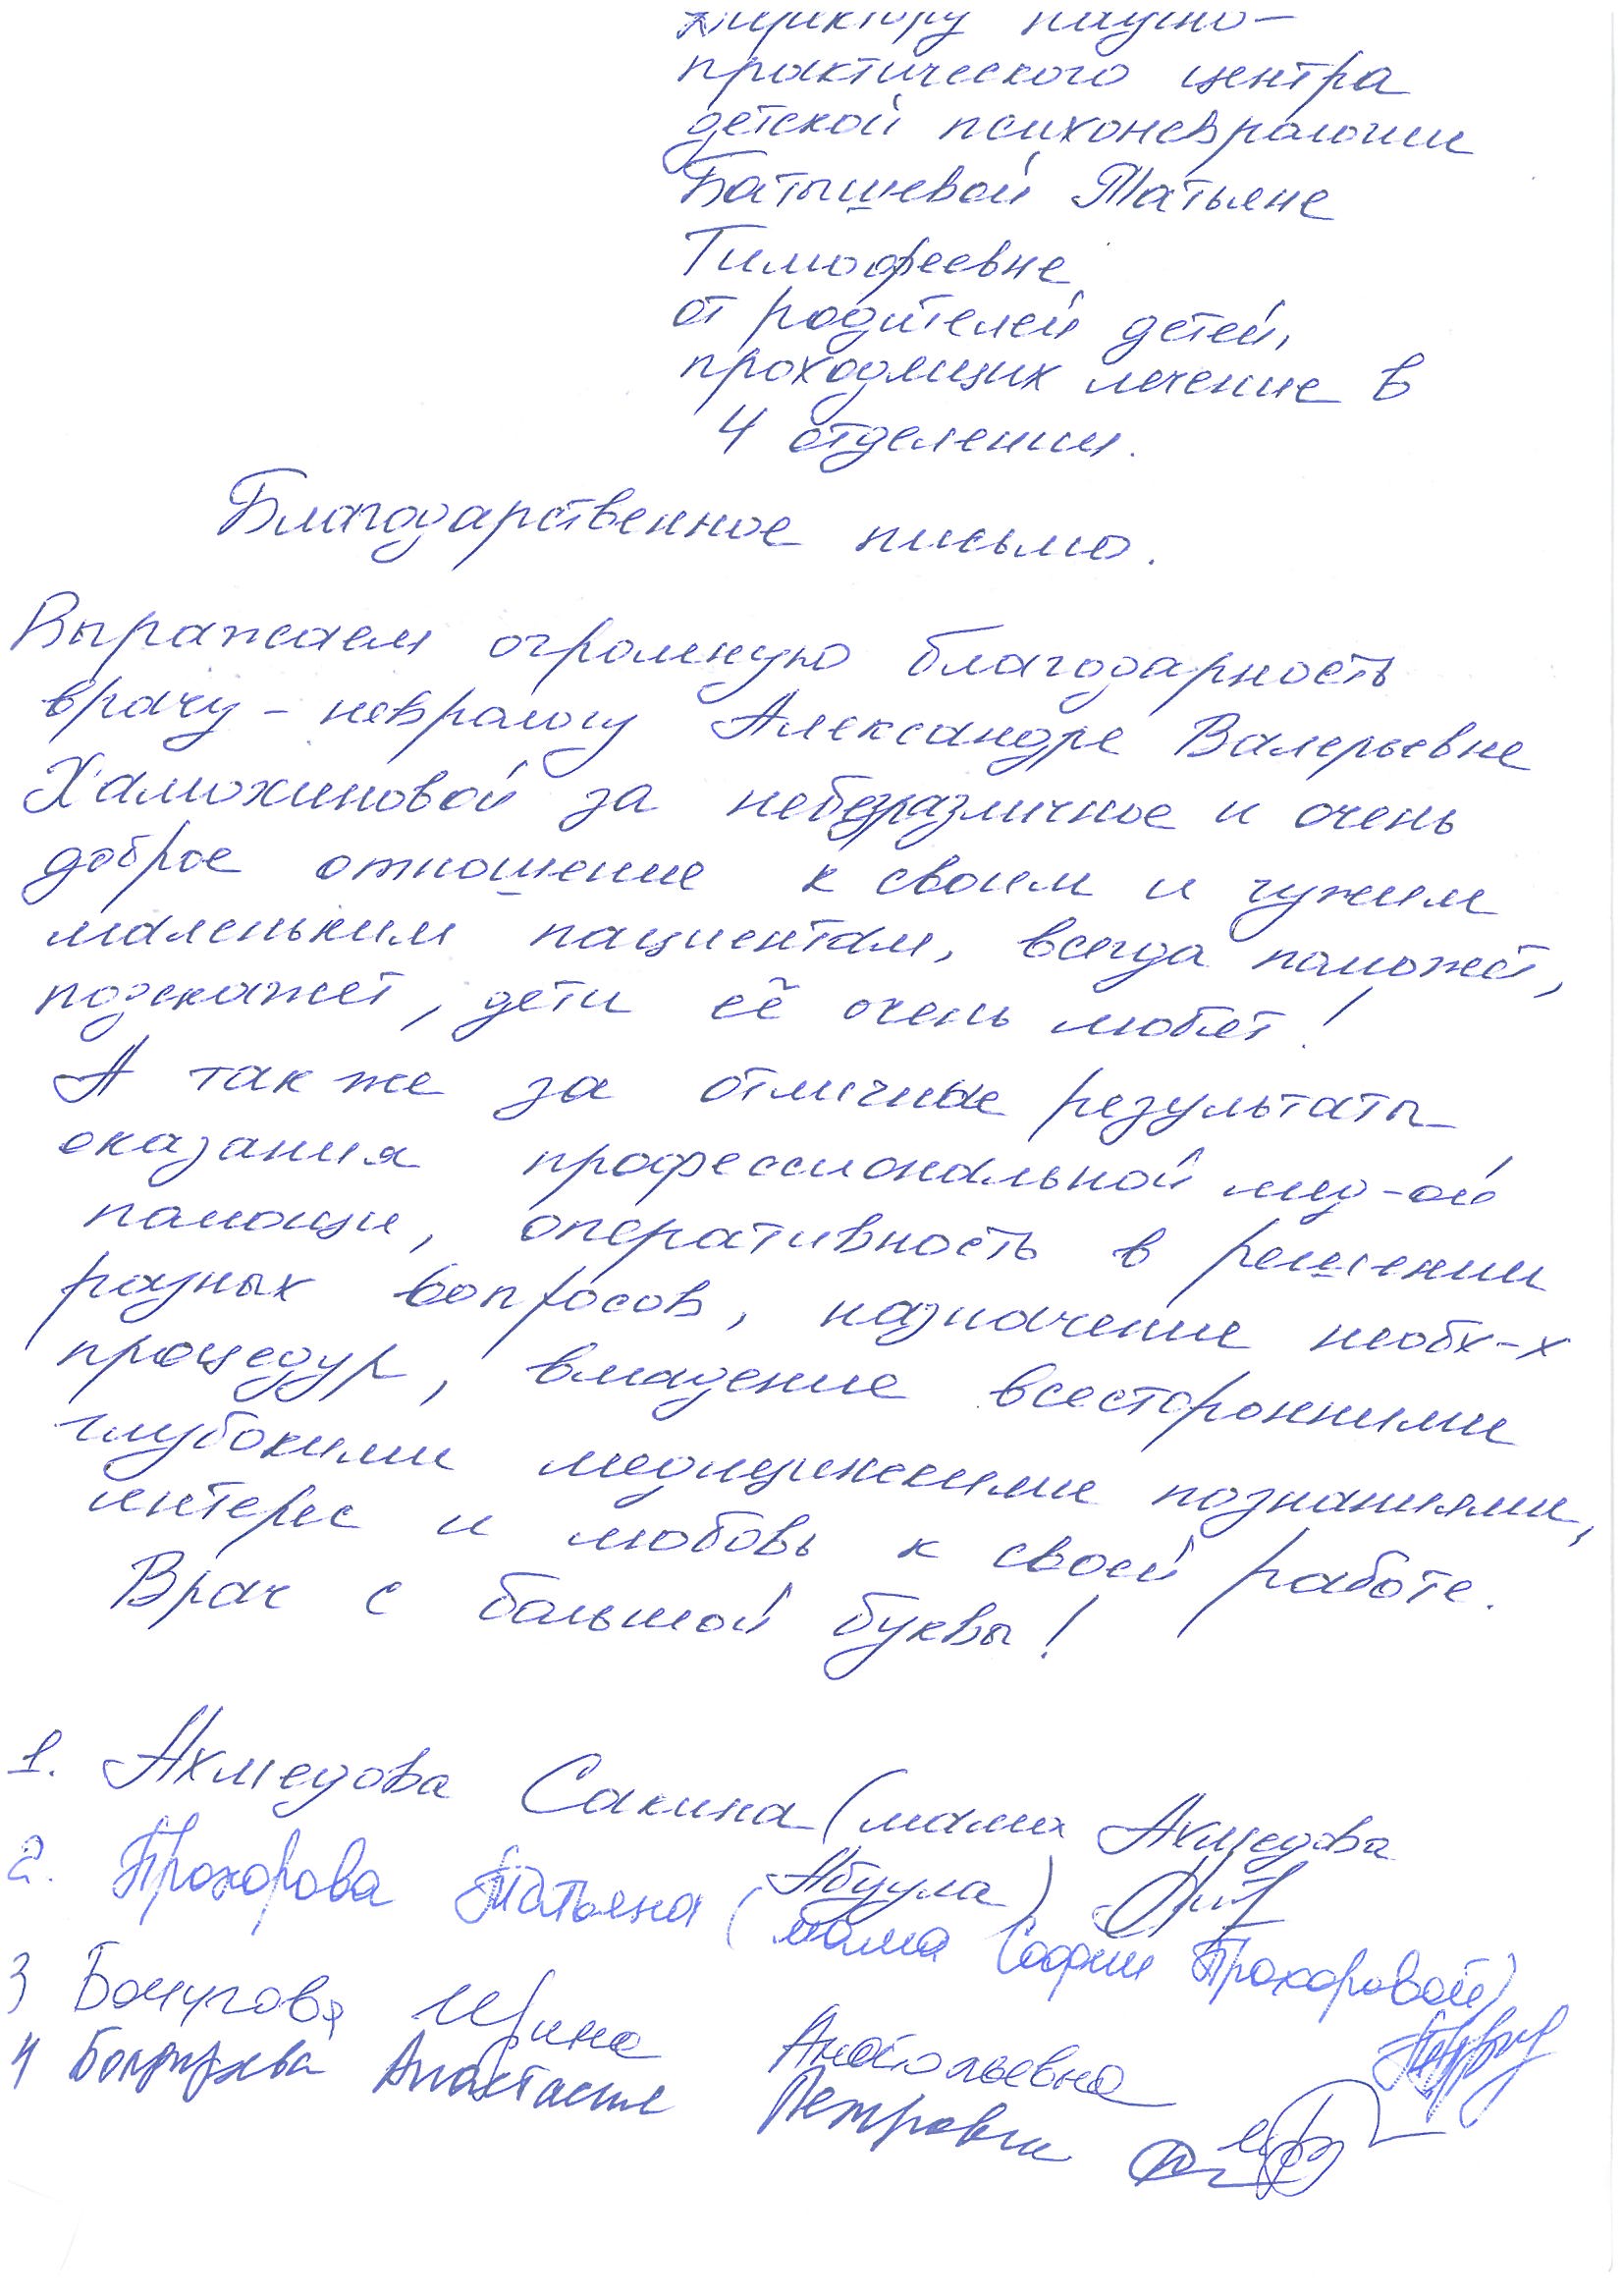 Директору научно-
практического центра
детской психоневрологии
Батышевой Татьяне
Тимофеевне
от родителей детей,
проходящих лечение в
4 отделении.
Благодарственное письмо.
Выражаем огромную благодарность
врачу-неврологу Александре Валерьевне
Халюхиновой за небезразличное и очень
доброе отношение к своим и чужим
маленьким пациентам, всегда поможет,
подскажет, дети её очень любят!
А так же за отличные результаты
оказания профессиональной мед-ой
помощи, оперативность в решении
разных вопросов, назначение необх-х
процедур, владение всесторонними
глубокими медицинскими познаниями,
интерес и любовь к своей работе.
Врач с большой буквы!
1. Ахмедова Сакина (мама Ахмедова
Абдула)
2. Прохорова Татьяна (мама Софии Прохоровой)
3 Ирина Анатольевна
4 Анастасия Петровна